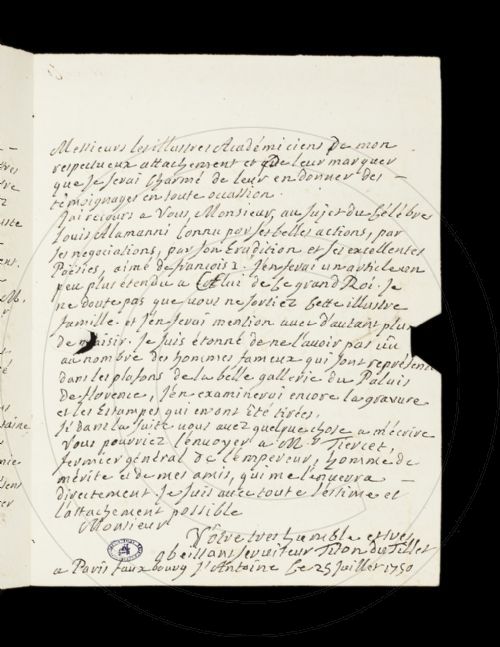 Messieurs les illustres Académiciens de mon
respectueux attachement et de leur marquer
que je serai charmé de leur en donner des
témoignages en toute occassion.
J'ai recours a Vous, Monsieur, au sujet du Célébre
Louis Alamanni connu par ses belles actions, par
ses negociations, par son Erudition et ses excellentes
Poësies, aimé de françois 1. J'en ferai un article un
peu plus étendu a Celui de ce grand Roi. Je
ne doute pas que vous ne sortiez cette illustre
famille. et J'en ferai mention avec d'autant plus
de plaisir. Je suis étonné de ne l'avoir pas vû
au nombre des hommes fameux qui sont representés
dans les plafons de la belle gallerie du Palais
de florence, J'en examinerai encore la gravure
et les Estampes qui en ont été tirées.
Si dans la suite vous avez quelque chose a m'écrire
Vous pourriez l'envoyer a Mr Tiercet,
fermier général de l'Empereur, homme de
mérite et de mes amis, qui me l'envera
directement Je suis avec toute l'estime et
l'attachement possible
Monsieur
Vôtre tres humble et tres
obeissant serviteur Titon du Tillet
a Paris faux bourg St Antoine Le 25 Juillet 1750